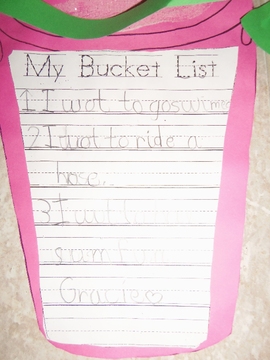 My Bucket List
1 I wot to go swimeg
2 I wot to ride a
hose.
3 I
sum
Gracie